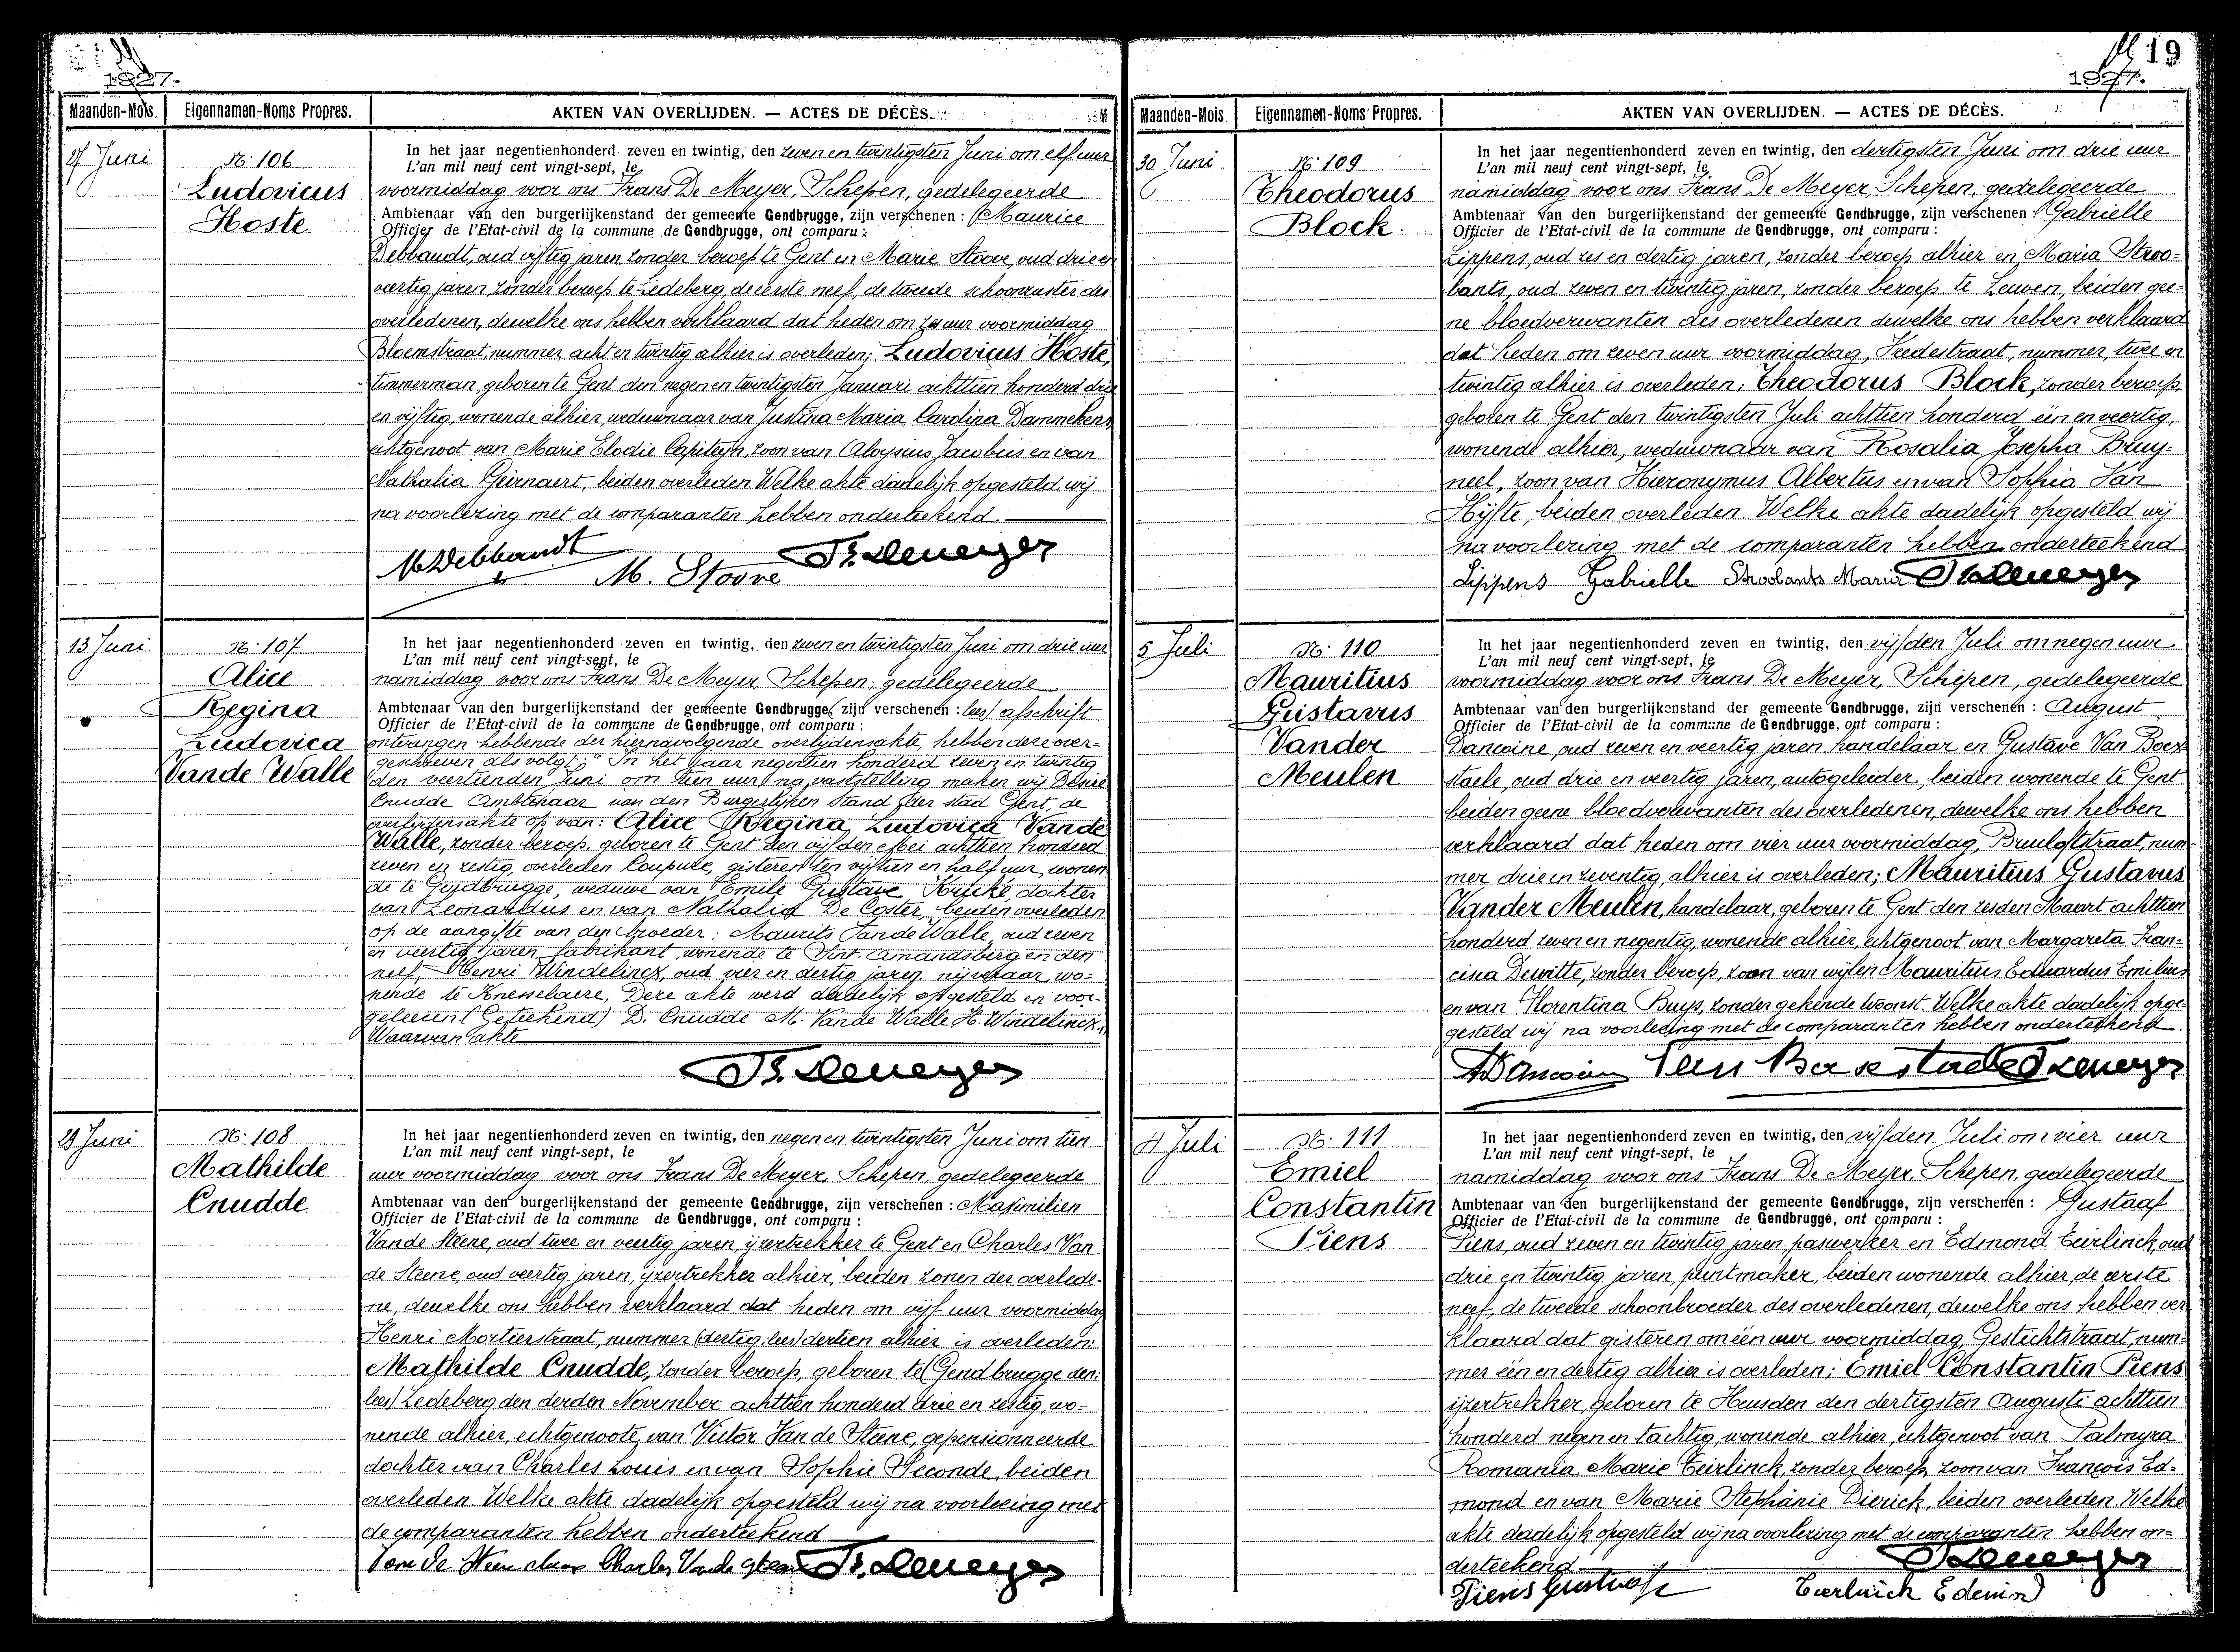 1927.
Maanden-Mois. Eigennamen-Noms Propres. AKTEN VAN OVERLIJDEN. — ACTES DE DÉCÈS.
27 Juni
No 106
Ludovicus
Hoste
In het jaar negentienhonderd zeven en twintig, den zeven en twintigsten Juni om elf uur
L'an mil neuf cent vingt-sept, le
voormiddag voor ons Frans De Meyer, Schepen, gedelegeerde
Ambtenaar van den burgerlijkenstand der gemeente Gendbrugge, zijn verschenen : Maurice
Officier de l'Etat-civil de la commune de Gendbrugge, ont comparu :
Debbaudt, oud vijftig jaren, zonder beroep te Gent en Marie Stoove, oud drie en
veertig jaren, zonder beroep te Ledeberg, de eerste neef, de tweede schoonzuster des
overledenen, dewelke ons hebben verklaard dat heden om uur voormiddag
Bloemstraat, nummer acht en twintig alhier is overleden; Ludovicus Hoste,
timmerman, geboren te Gent den negen en twintigsten Januari achttien honderd drie
en vijftig, wonende alhier, weduwnaar van Justina Maria Carolina Dammekens,
echtgenoot van Marie Elodie Capiteyn, zoon van Aloysius Jacobus en van
Nathalia Geirnaert, beiden overleden Welke akte dadelijk opgesteld wij
na voorlezing met de comparanten hebben onderteekend.
M Debbaudt M. Stoove Fr. Demeyer
13 Juni
No 107
Alice
Regina
Ludovica
Vande Walle
In het jaar negentienhonderd zeven en twintig, den zeven en twintigsten Juni om drie uur
L'an mil neuf cent vingt-sept, le
namiddag voor ons Frans De Meyer, Schepen, gedelegeerde
Ambtenaar van den burgerlijkenstand der gemeente Gendbrugge, zijn verschenen : lees) afschrift
Officier de l'Etat-civil de la commune de Gendbrugge, ont comparu :
ontvangen hebbende der hiernavolgende overlijdensakte, hebben deze over-
geschreven als volgt; "In het jaar negentien honderd zeven en twintig
den veertienden Juni om tien uur, na vaststelling maken wij Désiré
Cnudde Ambtenaar van den Burgerlijken Stand der stad Gent, de
overlijdensakte op van: Alice Regina Ludovica Vande
Walle, zonder beroep, geboren te Gent den vijfden Mei achttien honderd
zeven en zestig, overleden Coupure, gisteren ten vijftien en half uur, wonen-
de te Gendbrugge, weduwe van Emile Gustave Krické, dochter
van Leonardus en van Nathalia De Coster, beiden overleden
op de aangifte van den broeder: Maurits Vande Walle, oud zeven
en veertig jaren, fabrikant, wonende te Sint-Amandsberg en den
neef, Henri Windelincx, oud vier en dertig jaren, nijveraar, wo-
nende te Knesselaere, Deze akte werd dadelijk opgesteld en voor-
gelezen. (Geteekend) D. Cnudde M. Vande Walle H. Windelincx."
Waarvan akte
Fr. Demeyer
29 Juni
No 108
Mathilde
Cnudde
In het jaar negentienhonderd zeven en twintig, den negen en twintigsten Juni om tien
L'an mil neuf cent vingt-sept, le
uur voormiddag voor ons Frans De Meyer, Schepen, gedelegeerde
Ambtenaar van den burgerlijkenstand der gemeente Gendbrugge, zijn verschenen : Maximilien
Officier de l'Etat-civil de la commune de Gendbrugge, ont comparu :
Van de Steene, oud twee en veertig jaren, ijzertrekker te Gent en Charles Van
de Steene, oud veertig jaren, ijzertrekker alhier, beiden zonen der overlede-
ne, dewelke ons hebben verklaard dat heden om vijf uur voormiddag
Henri Mortierstraat, nummer (dertig, lees) dertien alhier is overleden:
Mathilde Cnudde, zonder beroep, geboren te (Gendbrugge den:
lees) Ledeberg den derden November achttien honderd drie en zestig, wo-
nende alhier, echtgenoote van Victor Van de Steene, gepensionneerde
dochter van Charles Louis en van Sophie Seconde, beiden
overleden. Welke akte dadelijk opgesteld wij na voorlezing met
de comparanten hebben onderteekend
Van de Steene Charles Van de Steene Fr. Demeyer
19
1927.
Maanden-Mois. Eigennamen-Noms Propres. AKTEN VAN OVERLIJDEN. — ACTES DE DÉCÈS.
30 Juni
No 109
Theodorus
Block
In het jaar negentienhonderd zeven en twintig, den dertigsten Juni om drie uur
L'an mil neuf cent vingt-sept, le
namiddag voor ons Frans De Meyer, Schepen, gedelegeerde
Ambtenaar van den burgerlijkenstand der gemeente Gendbrugge, zijn verschenen : Gabrielle
Officier de l'Etat-civil de la commune de Gendbrugge, ont comparu :
Lippens, oud zes en dertig jaren, zonder beroep alhier en Maria Stroo-
bants, oud zeven en twintig jaren, zonder beroep te Leuven, beiden gee-
ne bloedverwanten des overledenen dewelke ons hebben verklaard
dat heden om zeven uur voormiddag, Vredestraat, nummer, twee en
twintig alhier is overleden; Theodorus Block, zonder beroep,
geboren te Gent den twintigsten Juli achttien honderd één en veertig,
wonende alhier, weduwnaar van Rosalia Josepha Bruy-
neel, zoon van Hieronymus Albertus en van Sophia Van
Hijfte, beiden overleden. Welke akte dadelijk opgesteld wij
na voorlezing met de comparanten hebben onderteekend
Lippens Gabrielle Stroobants Maria Fr. Demeyer
5 Juli
No 110
Mauritius
Gustavus
Vander
Meulen
In het jaar negentienhonderd zeven en twintig, den vijfden Juli om negen uur
L'an mil neuf cent vingt-sept, le
voormiddag voor ons Frans De Meyer, Schepen, gedelegeerde
Ambtenaar van den burgerlijkenstand der gemeente Gendbrugge, zijn verschenen : August
Officier de l'Etat-civil de la commune de Gendbrugge, ont comparu :
Dancoine, oud zeven en veertig jaren, handelaar en Gustave Van Boex-
staele, oud drie en veertig jaren, autogeleider, beiden wonende te Gent
beiden geene bloedverwanten des overledenen, dewelke ons hebben
verklaard dat heden om vier uur voormiddag, Bruiloftstraat, num-
mer drie en zeventig, alhier is overleden; Mauritius Gustavus
Vander Meulen, handelaar, geboren te Gent den zesden Maart achttien
honderd zeven en negentig, wonende alhier, echtgenoot van Margareta Fran-
cisca Dewitte, zonder beroep, zoon van wijlen Mauritius Eduardus Emilius
en van Florentina Buys, zonder gekende woonst. Welke akte dadelijk opge-
gesteld wij na voorlezing met de comparanten hebben onderteekend.
A Dancoine Van Boexstaele Fr Demeyer
4 Juli
No 111
Emiel
Constantin
Piens
In het jaar negentienhonderd zeven en twintig, den vijfden Juli om vier uur
L'an mil neuf cent vingt-sept, le
namiddag voor ons Frans De Meyer, Schepen, gedelegeerde
Ambtenaar van den burgerlijkenstand der gemeente Gendbrugge, zijn verschenen : Gustaaf
Officier de l'Etat-civil de la commune de Gendbrugge, ont comparu :
Piens, oud zeven en twintig jaren, paswerker en Edmond Teirlinck, oud
drie en twintig jaren, puntmaker, beiden wonende alhier, de eerste
neef, de tweede schoonbroeder des overledenen, dewelke ons hebben ver-
klaard dat gisteren om één uur voormiddag, Gestichtstraat, num-
mer één en dertig alhier is overleden; Emiel Constantin Piens
ijzertrekker, geboren te Heusden den dertigsten Augusti achttien
honderd negen en tachtig, wonende alhier, echtgenoot van Palmyra
Romania Marie Teirlinck, zonder beroep, zoon van François Ed-
mond en van Marie Stephanie Dierick, beiden overleden. Welke
akte dadelijk opgesteld wij na voorlezing met de comparanten hebben on-
derteekend Fr Demeyer
Piens Gustaaf Teerlinck Edemond